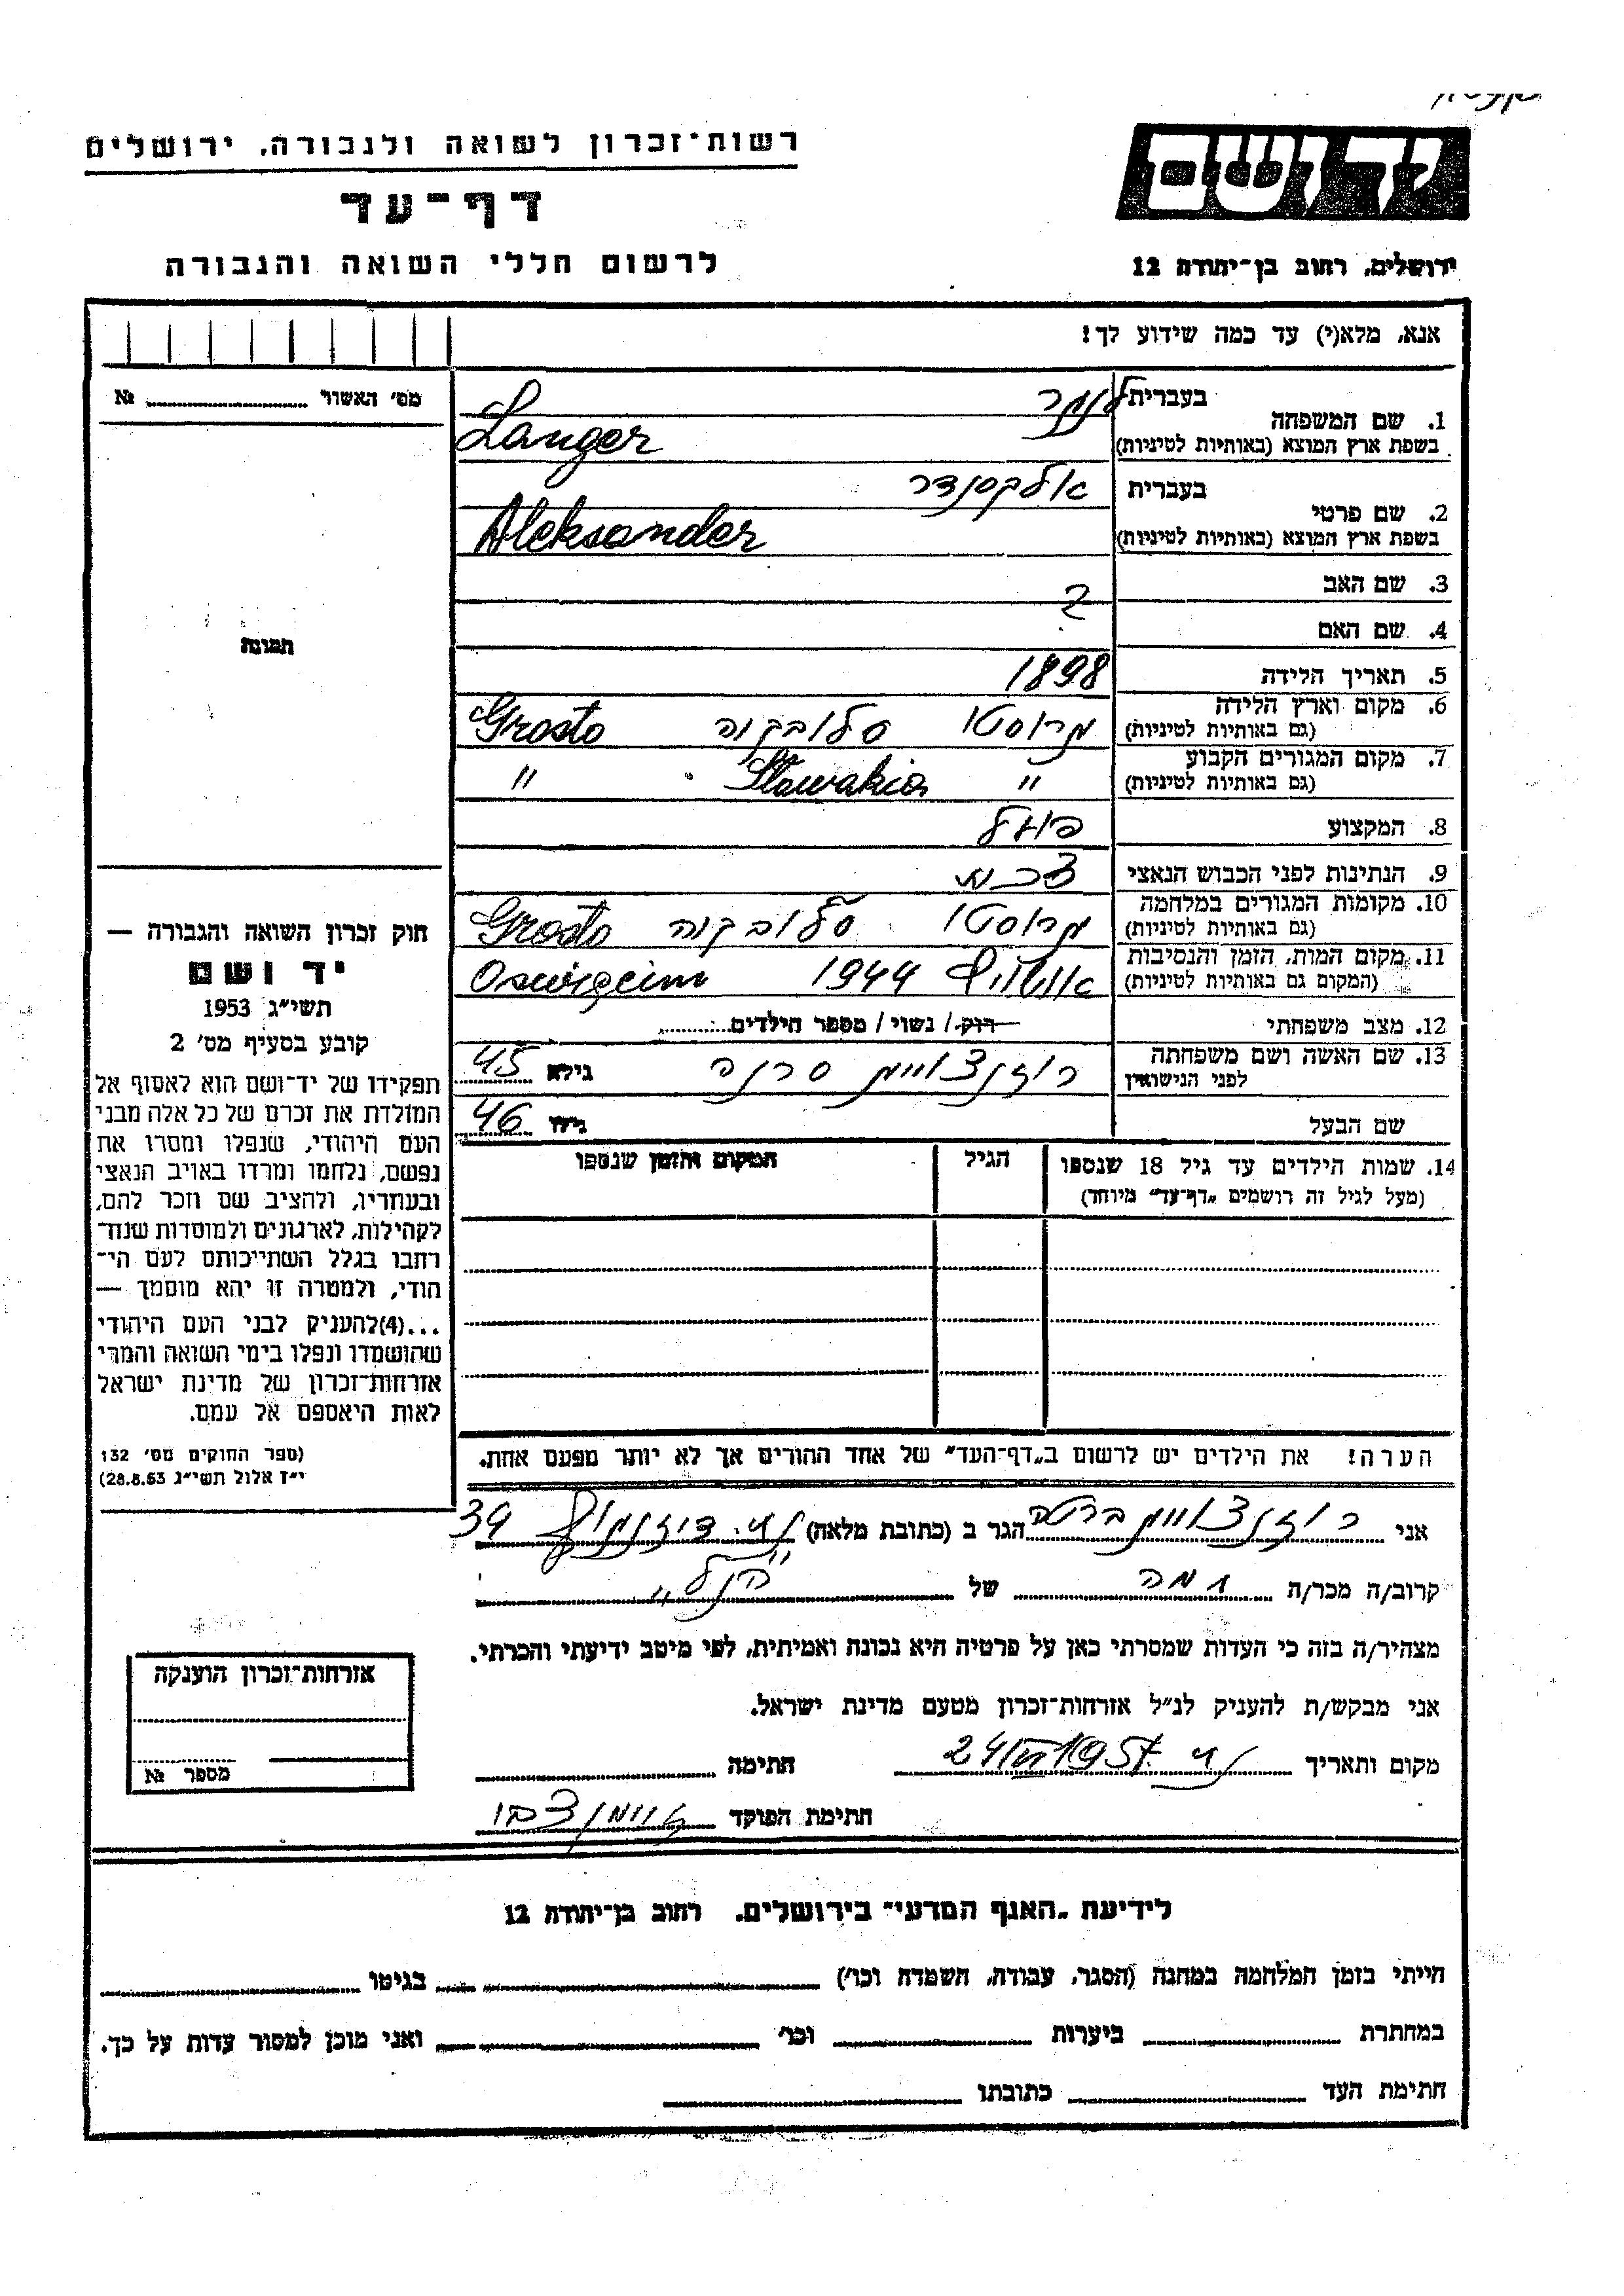 יד ושם
ירושלים, רחוב בן־יהודה 12
רשות־זכרון לשואה ולגבורה, ירושלים
דף־עד
לרשום חללי השואה והגבורה
אנא, מלא(י) עד כמה שידוע לך!
מס' האשור № 
תמונה
חוק זכרון השואה והגבורה —
יד ושם
תשי"ג 1953
קובע בסעיף מס' 2
תפקידו של יד־ושם הוא לאסוף אל
המולדת את זכרם של כל אלה מבני
העם היהודי, שנפלו ומסרו את
נפשם, נלחמו ומרדו באויב הנאצי
ובעוזריו, ולהציב שם וזכר להם,
לקהילות, לארגונים ולמוסדות שנח־
רבו בגלל השתייכותם לעם הי־
הודי, ולמטרה זו יהא מוסמך —
...(4)להעניק לבני העם היהודי
שהושמדו ונפלו בימי השואה והמרי
אזרחות־זכרון של מדינת ישראל
לאות היאספם אל עמם.
(ספר החוקים מס' 132
י"ז אלול תשי"ג 28.8.53)
1. שם המשפחה בעברית לנגר
בשפת ארץ המוצא (באותיות לטיניות) Langer
2. שם פרטי בעברית אלקסנדר
בשפת ארץ המוצא (באותיות לטיניות) Aleksander
3. שם האב ?
4. שם האם
5. תאריך הלידה 1898
6. מקום וארץ הלידה גרוסטו סלובקיה Grosto
(גם באותיות לטיניות)
7. מקום המגורים הקבוע " Slawakia "
(גם באותיות לטיניות)
8. המקצוע פועל
9. הנתינות לפני הכבוש הנאצי צכית
10. מקומות המגורים במלחמה גרוסטו סלובקיה Grosto
(גם באותיות לטיניות)
11. מקום המות, הזמן והנסיבות אושויץ 1944 Oswięcim
(המקום גם באותיות לטיניות)
12. מצב משפחתי רוק / נשוי / מספר הילדים
13. שם האשה ושם משפחתה רוזנצוויג סרנה גילא 45
לפני הנישואין
שם הבעל גילו 46
14. שמות הילדים עד גיל 18 שנספו הגיל המקום והזמן שנספו
(מעל לגיל זה רושמים "דף־עד" מיוחד)
הערה! את הילדים יש לרשום ב"דף־העד" של אחד ההורים אך לא יותר מפעם אחת.
אני רוזנצוויג ברטה הגר ב (כתובת מלאה) דיזנגוף 39
קרוב/ה מכר/ה גיסה של "הנ"ל"
מצהיר/ה בזה כי העדות שמסרתי כאן על פרטיה היא נכונה ואמיתית, לפי מיטב ידיעתי והכרתי.
אני מבקש/ת להעניק לנ"ל אזרחות־זכרון מטעם מדינת ישראל.
מקום ותאריך חתימה
חתימת הפוקד
אזרחות־זכרון הוענקה
מספר №
לידיעת "האגף המדעי" בירושלים, רחוב בן־יהודה 12
הייתי בזמן המלחמה במחנה (הסגר, עבודה, השמדה וכו') בגיטו
במחתרת ביערות וכו' ואני מוכן למסור עדות על כך.
חתימת העד כתובתו